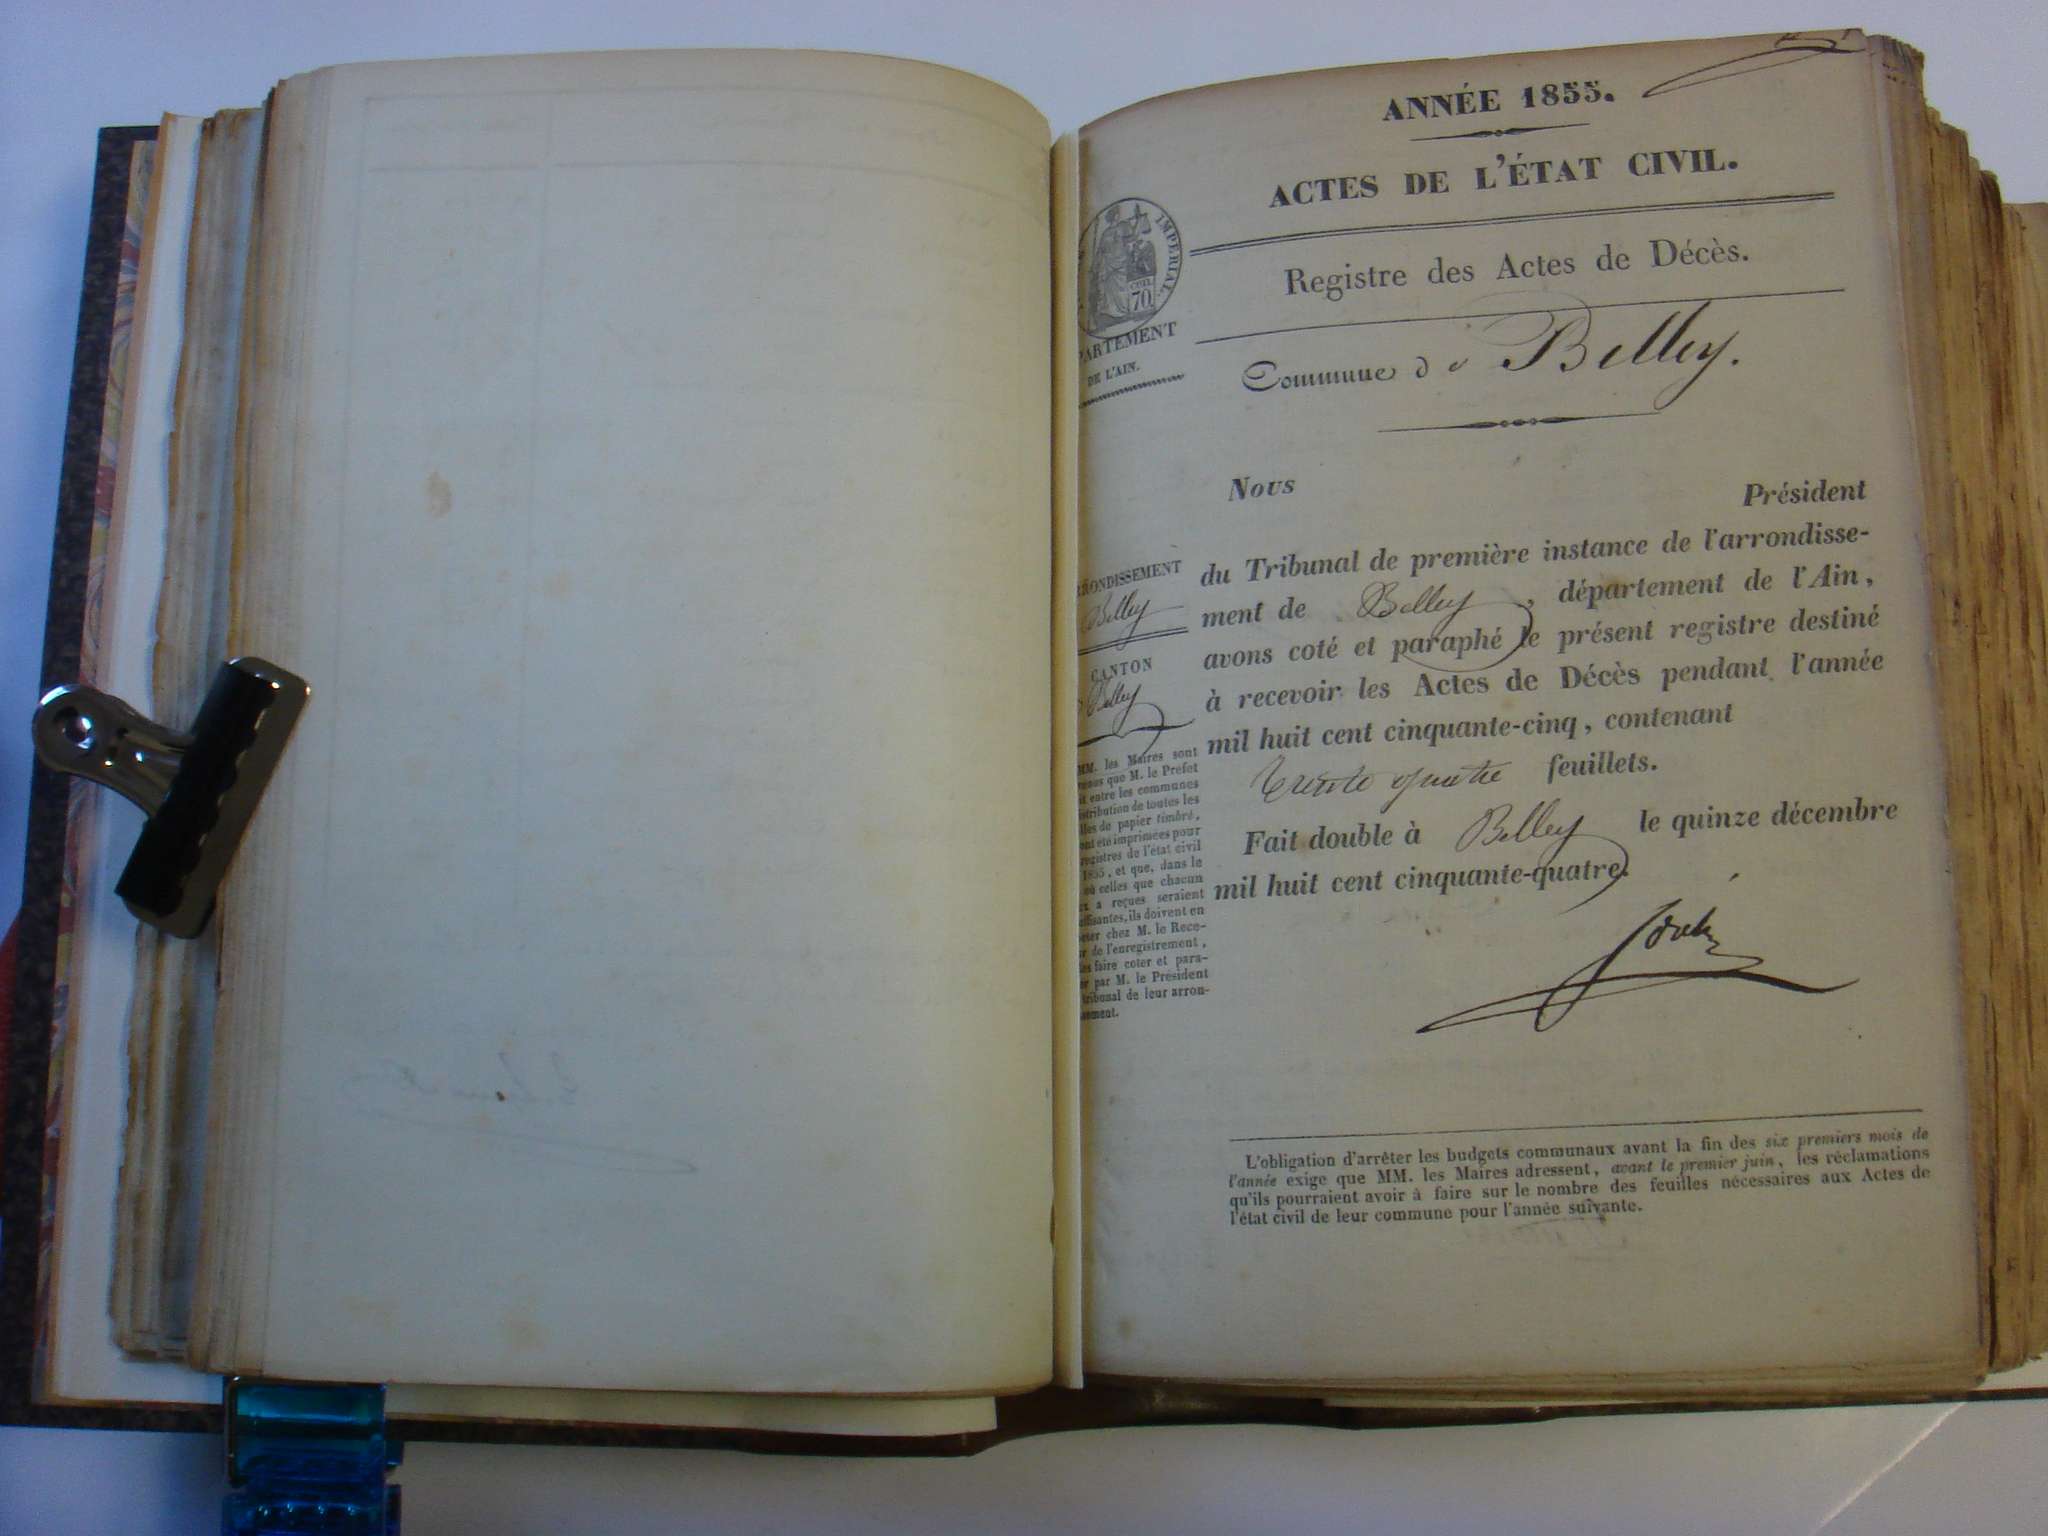 ANNÉE 1855.
ACTES DE L'ÉTAT CIVIL.
IMPÉRIAL.
CENT.
70
PARTEMENT
DE L'AIN.
Registre des Actes de Décès.
Commune de Belley.
RRONDISSEMENT
Belley
CANTON
Belley
MM. les Maires sont
que M. le Préfet
it entre les communes
istribution de toutes les
lles de papier timbré,
ont été imprimées pour
registres de l'état civil
1855, et que, dans le
où celles que chacun
ux a reçues seraient
uffisantes, ils doivent en
eter chez M. le Rece-
r de l'enregistrement,
les faire coter et para-
er par M. le Président
tribunal de leur arron-
sement.
Nous Président
du Tribunal de première instance de l'arrondisse-
ment de Belley, département de l'Ain,
avons coté et paraphé le présent registre destiné
à recevoir les Actes de Décès pendant l'année
mil huit cent cinquante-cinq, contenant
trente quatre feuillets.
Fait double à Belley le quinze décembre
mil huit cent cinquante-quatre.
L'obligation d'arrêter les budgets communaux avant la fin des six premiers mois de
l'année exige que MM. les Maires adressent, avant le premier juin, les réclamations
qu'ils pourraient avoir à faire sur le nombre des feuilles nécessaires aux Actes de
l'état civil de leur commune pour l'année suivante.